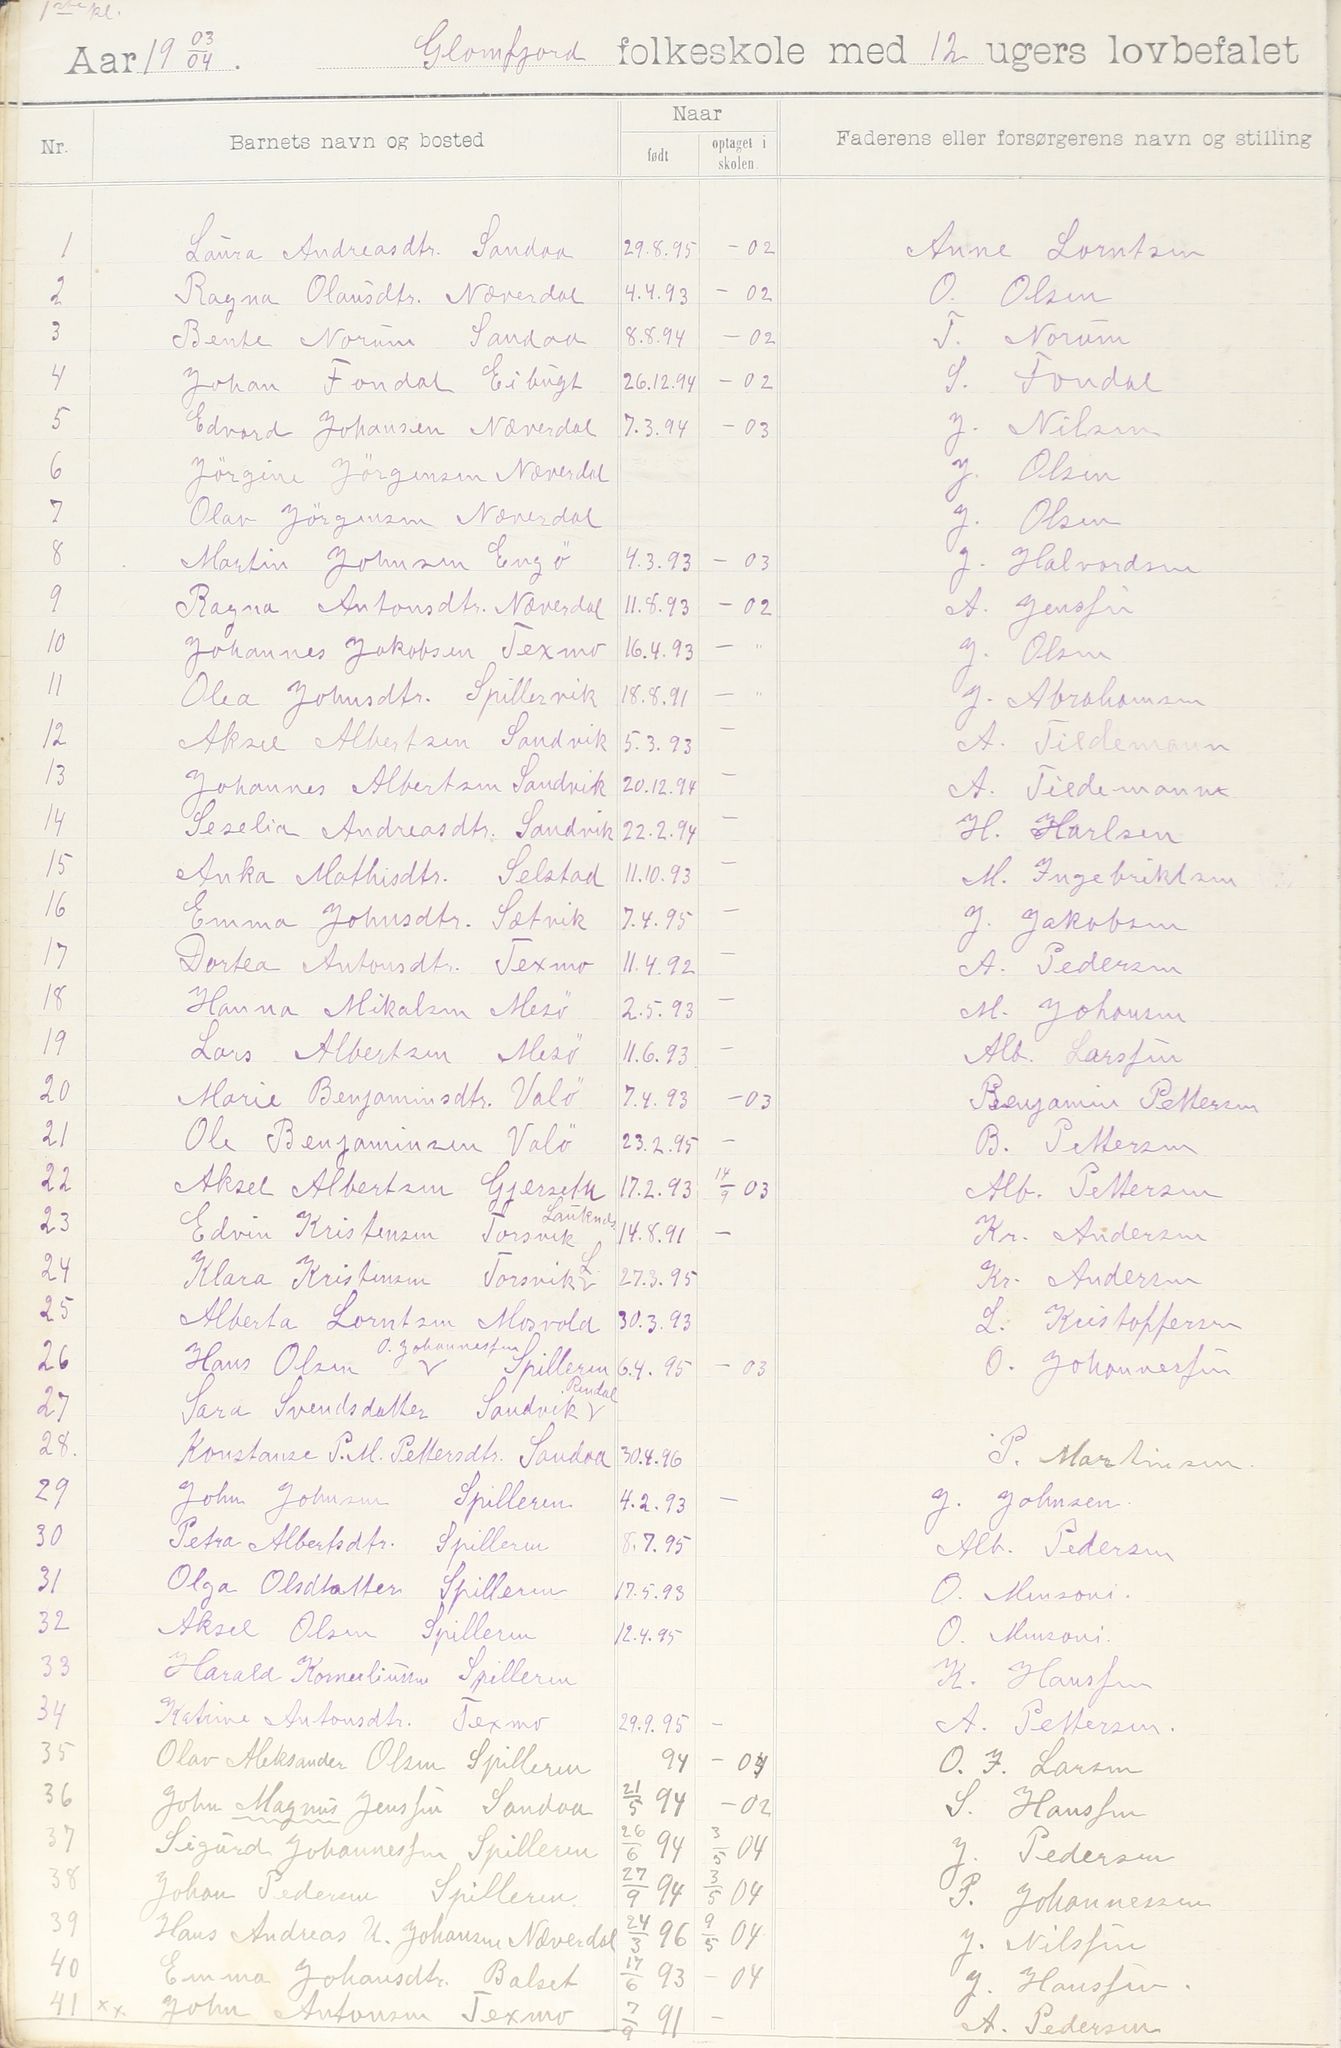 1ste kl.
Aar 19 03/04. Glomfjord folkeskole med 12 ugers lovbefalet
Nr. Barnets navn og bosted Naar født optaget i skolen. Faderens eller forsørgerens navn og stilling
1 Laura Andreasdtr. Sandaa 29.8.95 - 02 Anne Lorntsen
2 Ragna Olausdtr. Næverdal 4.4.93 - 02 O. Olsen
3 Bente Norum Sandaa 8.8.94 - 02 T. Norum
4 Johan Fondal Eibugt 26.12.94 - 02 S. Fondal
5 Edvard Johansen Næverdal 7.3.94 - 03 J. Nilsen
6 Jörgine Jörgensen Næverdal J. Olsen
7 Olav Jörgensen Næverdal J. Olsen
8 Martin Johnsen Engö 4.3.93 - 03 J. Halvordsen
9 Ragna Antonsdtr. Næverdal 11.8.93 - 02 A. Jenssen
10 Johannes Jakobsen Texmo 16.4.93 - " J. Olsen
11 Olea Johnsdtr. Spillervik 18.8.91 - " J. Abrahamsen
12 Aksel Albertsen Sandvik 5.3.93 - A. Tildemann
13 Johannes Albertsen Sandvik 20.12.94 - A. Tiedemann
14 Seselia Andreasdtr. Sandvik 22.2.94 - H. Harlsen
15 Anka Mathisdtr. Selstad 11.10.93 - M. Ingebriktsen
16 Emma Johnsdtr. Sætvik 7.4.95 - J. Jakobsen
17 Dortea Antonsdtr. Texmo 11.4.92 - A. Pedersen
18 Hanna Mikalsen Mesö 2.5.93 - M. Johansen
19 Lars Albertsen Mesö 11.6.93 - Alb. Larssen
20 Marie Benjaminsdtr. Valö 7.4.93 - 03 Benjamin Pettersen
21 Ole Benjaminsen Valö 23.2.95 - B. Pettersen
22 Aksel Albertsen Gjerseth 17.2.93 14/9 03 Alb. Pettersen
23 Edvin Kristensen Torsvik 14.8.91 - Kr. Andersen
24 Klara Kristensen Torsvik L. 27.3.95 Kr. Andersen
25 Alberta Lorntsen Mosvold 30.3.93 L. Kristoffersen
26 Hans Olsen O. Johannessen Spilleren 6.4.95 - 03 O. Johannessen
27 Sara Svendsdatter Sandvik Rendal
28. Konstanse P.M. Pettersdtr. Sandaa 30.4.96 P. Martinsen.
29 John Johnsen Spilleren 4.2.93 - J. Johnsen.
30 Petra Albertsdtr. Spilleren 8.7.95 Alb. Pedersen
31 Olga Olsdtatter Spilleren 17.5.93 O. Mensoni.
32 Aksel Olsen Spilleren 12.4.95 O. Mensoni.
33 Harald Korneliussen Spilleren K. Hanssen
34 Katrine Antonsdtr. Texmo 29.9.95 - A. Pettersen.
35 Olav Aleksander Olsen Spilleren 94 - 04 O. J. Larsen
36 John Magnus Jenssen Sandaa 21/5 94 - 02 S. Hanssen
37 Sigurd Johannessen Spilleren 26/6 94 3/5 04 J. Pedersen
38 Johan Pedersen Spilleren. 27/9 94 3/5 04 P. Johannessen
39 Hans Andreas U. Johansen Næverdal 24/3 96 9/5 04 J. Nilssen
40 Emma Johansdtr. Balset 17/6 93 - 04 J. Hanssen.
41 xx John Antonsen Texmo 7/9 91 - A. Pedersen